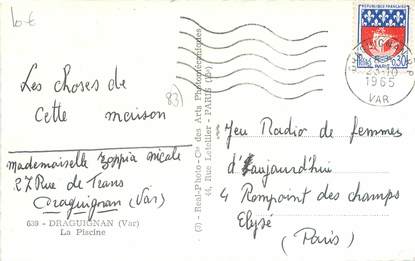 10€
Les choses de
cette maison
83)
mademoiselle Zoppia nicole
27 Rue de Trans
Draguignan (Var)
639 - DRAGUIGNAN (Var)
La Piscine
(3) - Real-Photo - Cie des Arts Photomécaniques
44, Rue Letellier - PARIS (15e)
REPUBLIQUE FRANÇAISE
PARIS
0,30
1965
VAR
Jeu Radio de femmes
d'aujourd'hui
4 Rompoint des champs
Elysé
(Paris)